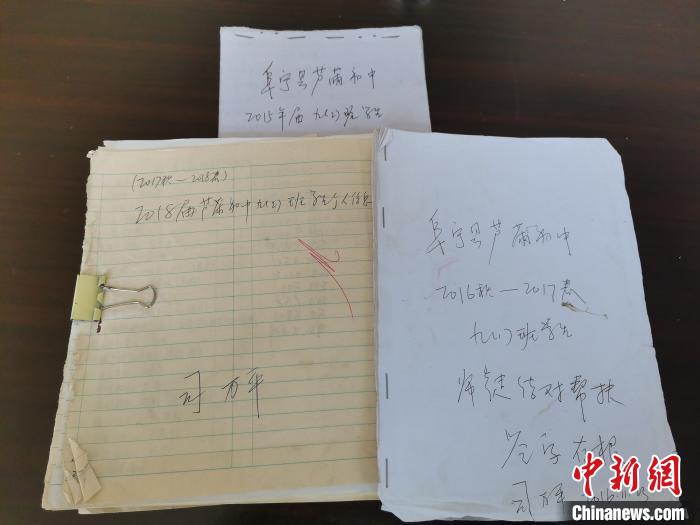 阜宁县芦蒲初中
2015年届九(2)班学生
(2017秋—2018春)
2018届芦蒲初中九(2)班学生个人信息
司万平
阜宁县芦蒲初中
2016秋—2017春
九(2)班学生
师徒结对帮扶
签字存根
司万平
中新网
Chinanews.com